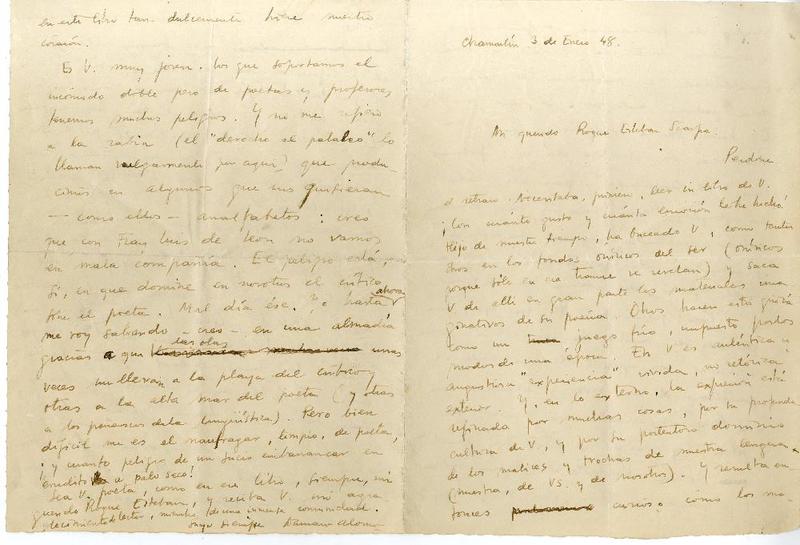 Chamartín 3 de Enero 48.
Mi querido Roque Esteban Scarpa.
Perdone
el retraso. Necesitaba, primero, leer su libro de V.
¡Con cuánto gusto y cuánta emoción lo he hecho!
Hijo de nuestro tiempo, ha buceado V., como tantos
otros en los fondos oníricos del ser (oníricos
porque sólo en ese trance se revelan) y saca
V. de allí en gran parte los materiales ima
ginativos de su poesía. Otros hacen esto quizá
como un juego frío, impuesto, por los
modos de una época. En V. es auténtica y
angustiosa "experiencia" vivida, no retórica
exterior. Y, en lo externo, la expresión está
refinada por muchas cosas, por su profunda
cultura de V., y por su portentoso dominio
de los matices y trochas de nuestra lengua
(nuestra, de VS. y de nosotros). Y resulta en
tonces curioso cómo los ma
en este libro tan dulcemente hiere nuestro
corazón.
Es V. muy joven. Los que soportamos el
incómodo doble peso de poetas y profesores
tenemos muchos peligros. Y no me refiero
a la rabia (el "derecho al pataleo" lo
llaman vulgarmente por aquí) que produ
cimos en algunos que nos quisieran
— como ellos — analfabetos: creo
que con Fray Luis de León no vamos
en mala compañía. El peligro está,
sí, en que domine en nosotros el crítico
sobre el poeta. Mal día ése. Yo hasta ahora
me voy salvando — creo — en una almadía
gracias a que las olas unas
veces me llevan a la playa del crítico y
otras a la alta mar del poeta (y otras
a los peñascos de la lingüística). Pero bien
difícil me es el naufragar, limpio, de poeta,
¡y cuánto peligro de un sucio embarrancar en
erudito a palo seco!
Sea V. poeta, como en ese libro, siempre, mi
querido Roque Esteban, y reciba V. mi agra
decimiento de lector, miembro de una inmensa comunidad.
Suyo siempre Dámaso Alonso